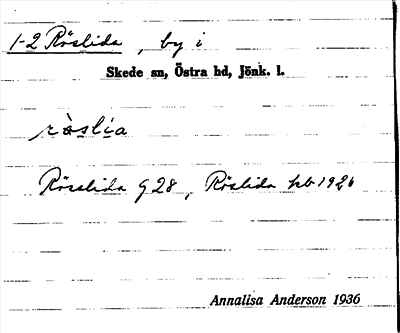 1-2 Röslida, by i
Skede sn, Östra hd, Jönk. l.
ròslia
Rösslida G28, Röslida hb 1926
Annalisa Anderson 1936